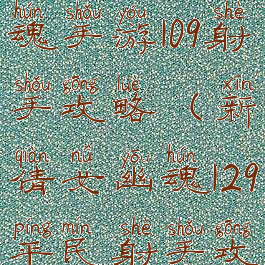 hún shǒu yóu shè
魂手游109射
shǒu gōng lüè xīn
手攻略（新
qiàn nǚ yōu hún
倩女幽魂129
píng mín shè shǒu gōng
平民射手攻